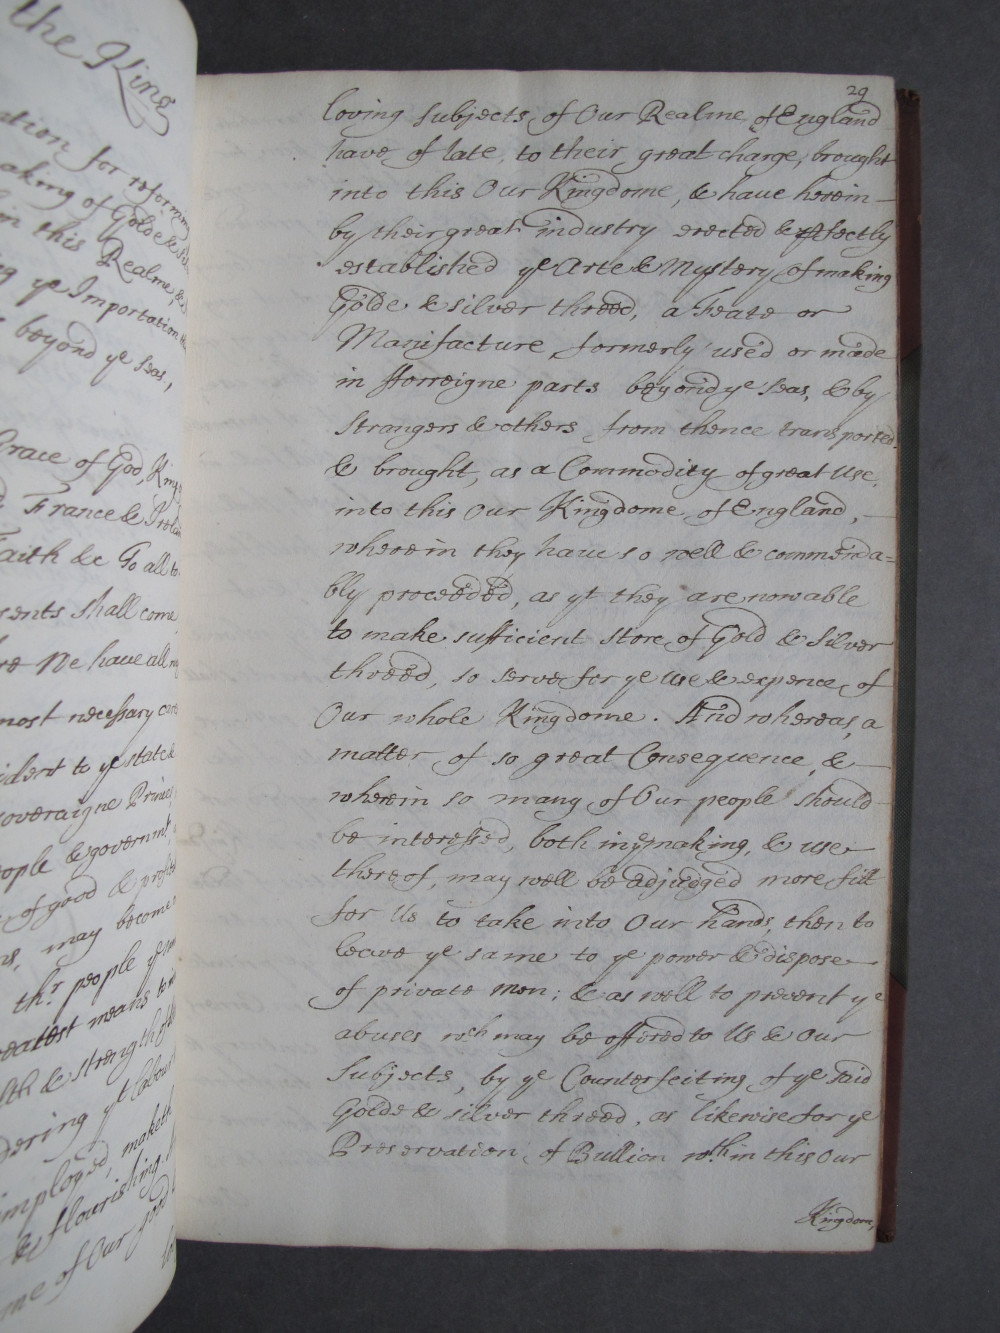 the King
ation for reforming
aking of Golde &
in this Realme, &
ng ye Importation
beyond ye seas,
Grace of God, King
France & Irelan
Faith &c To all to
esents shall come
We have all
most necessary
ident to ye state &
soveraigne Princ
ople & government,
of good & profit
may become
thr people ye
eatest means to
lth & strength of
dering yt labour
imployed, maketh
& flourishing,
me of Our good
29
loving Subjects, of Our Realme of England
have of late, to their great charge, brought
into this Our Kingdome, & have herein
by their great industry erected & pfectly
established ye Arte & Mystery of making
Golde & silver threed, a Feate or
Manifacture formerly used or made
in fforreigne parts beyond ye Seas, & by
Strangers & others from thence transported
& brought, as a Commodity of great use,
into this Our Kingdome of England,
wherein they have so well & commenda=
bly proceeded, as yt they are now able
to make sufficient store of Gold & Silver
threed, so serve for ye use & expence of
Our whole Kingdome. And whereas, a
matter of so great Consequence, &
wherein so many of Our people should
be interessed, both in ye making, & use
thereof, may well be adjudged more fitt
for Us to take into Our hands, then to
leave ye same to ye power & dispose
of private men; & as well to prevent ye
abuses wch may be offered to Us & Our
Subjects, by ye Counterfeiting of ye said
Golde & silver threed, as likewise for ye
Preservation of Bullion wthin this Our
Kingdome,